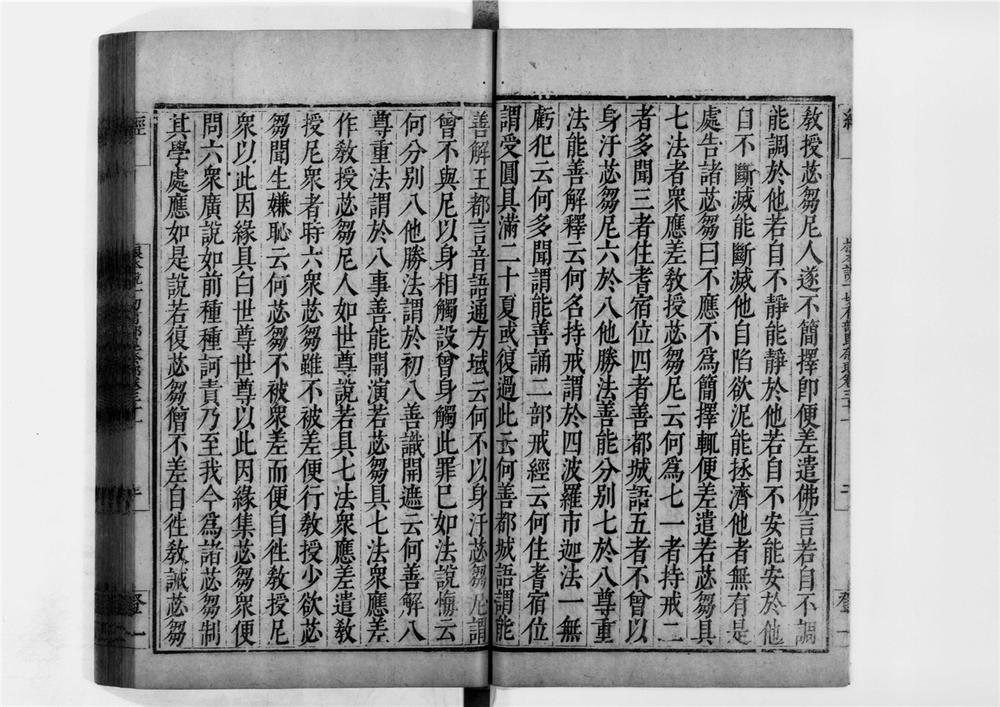 教授苾芻尼人遂不簡擇即便差遣佛言若自不調
能調於他若自不靜能靜於他若自不安能安於他
自不斷滅能斷滅他自陷欲泥能拯濟他者無有是
處告諸苾芻曰不應不為簡擇輒便差遣若苾芻具
七法者衆應差教授苾芻尼云何為七一者持戒二
者多聞三者住耆宿位四者善都城語五者不曾以
身汙苾芻尼六於八他勝法善能分別七於八尊重
法能善解釋云何名持戒謂於四波羅市迦法一無
虧犯云何多聞謂能善誦二部戒經云何住耆宿位
謂受圓具滿二十夏或復過此云何善都城語謂能
善解王都言音語通方域云何不以身汙苾芻尼謂
曾不與尼以身相觸設曾身觸此罪已如法說悔云
何分別八他勝法謂於初八善識開遮云何善解八
尊重法謂於八事善能開演若苾芻具七法衆應差
作教授苾芻尼人如世尊說若具七法衆應差遣教
授尼衆者時六衆苾芻雖不被差便行教授少欲苾
芻聞生嫌恥云何苾芻不被衆差而便自往教授尼
衆以此因緣具白世尊世尊以此因緣集苾芻衆便
問六衆廣說如前種種訶責乃至我今為諸苾芻制
其學處應如是說若復苾芻僧不差自往教誡苾芻